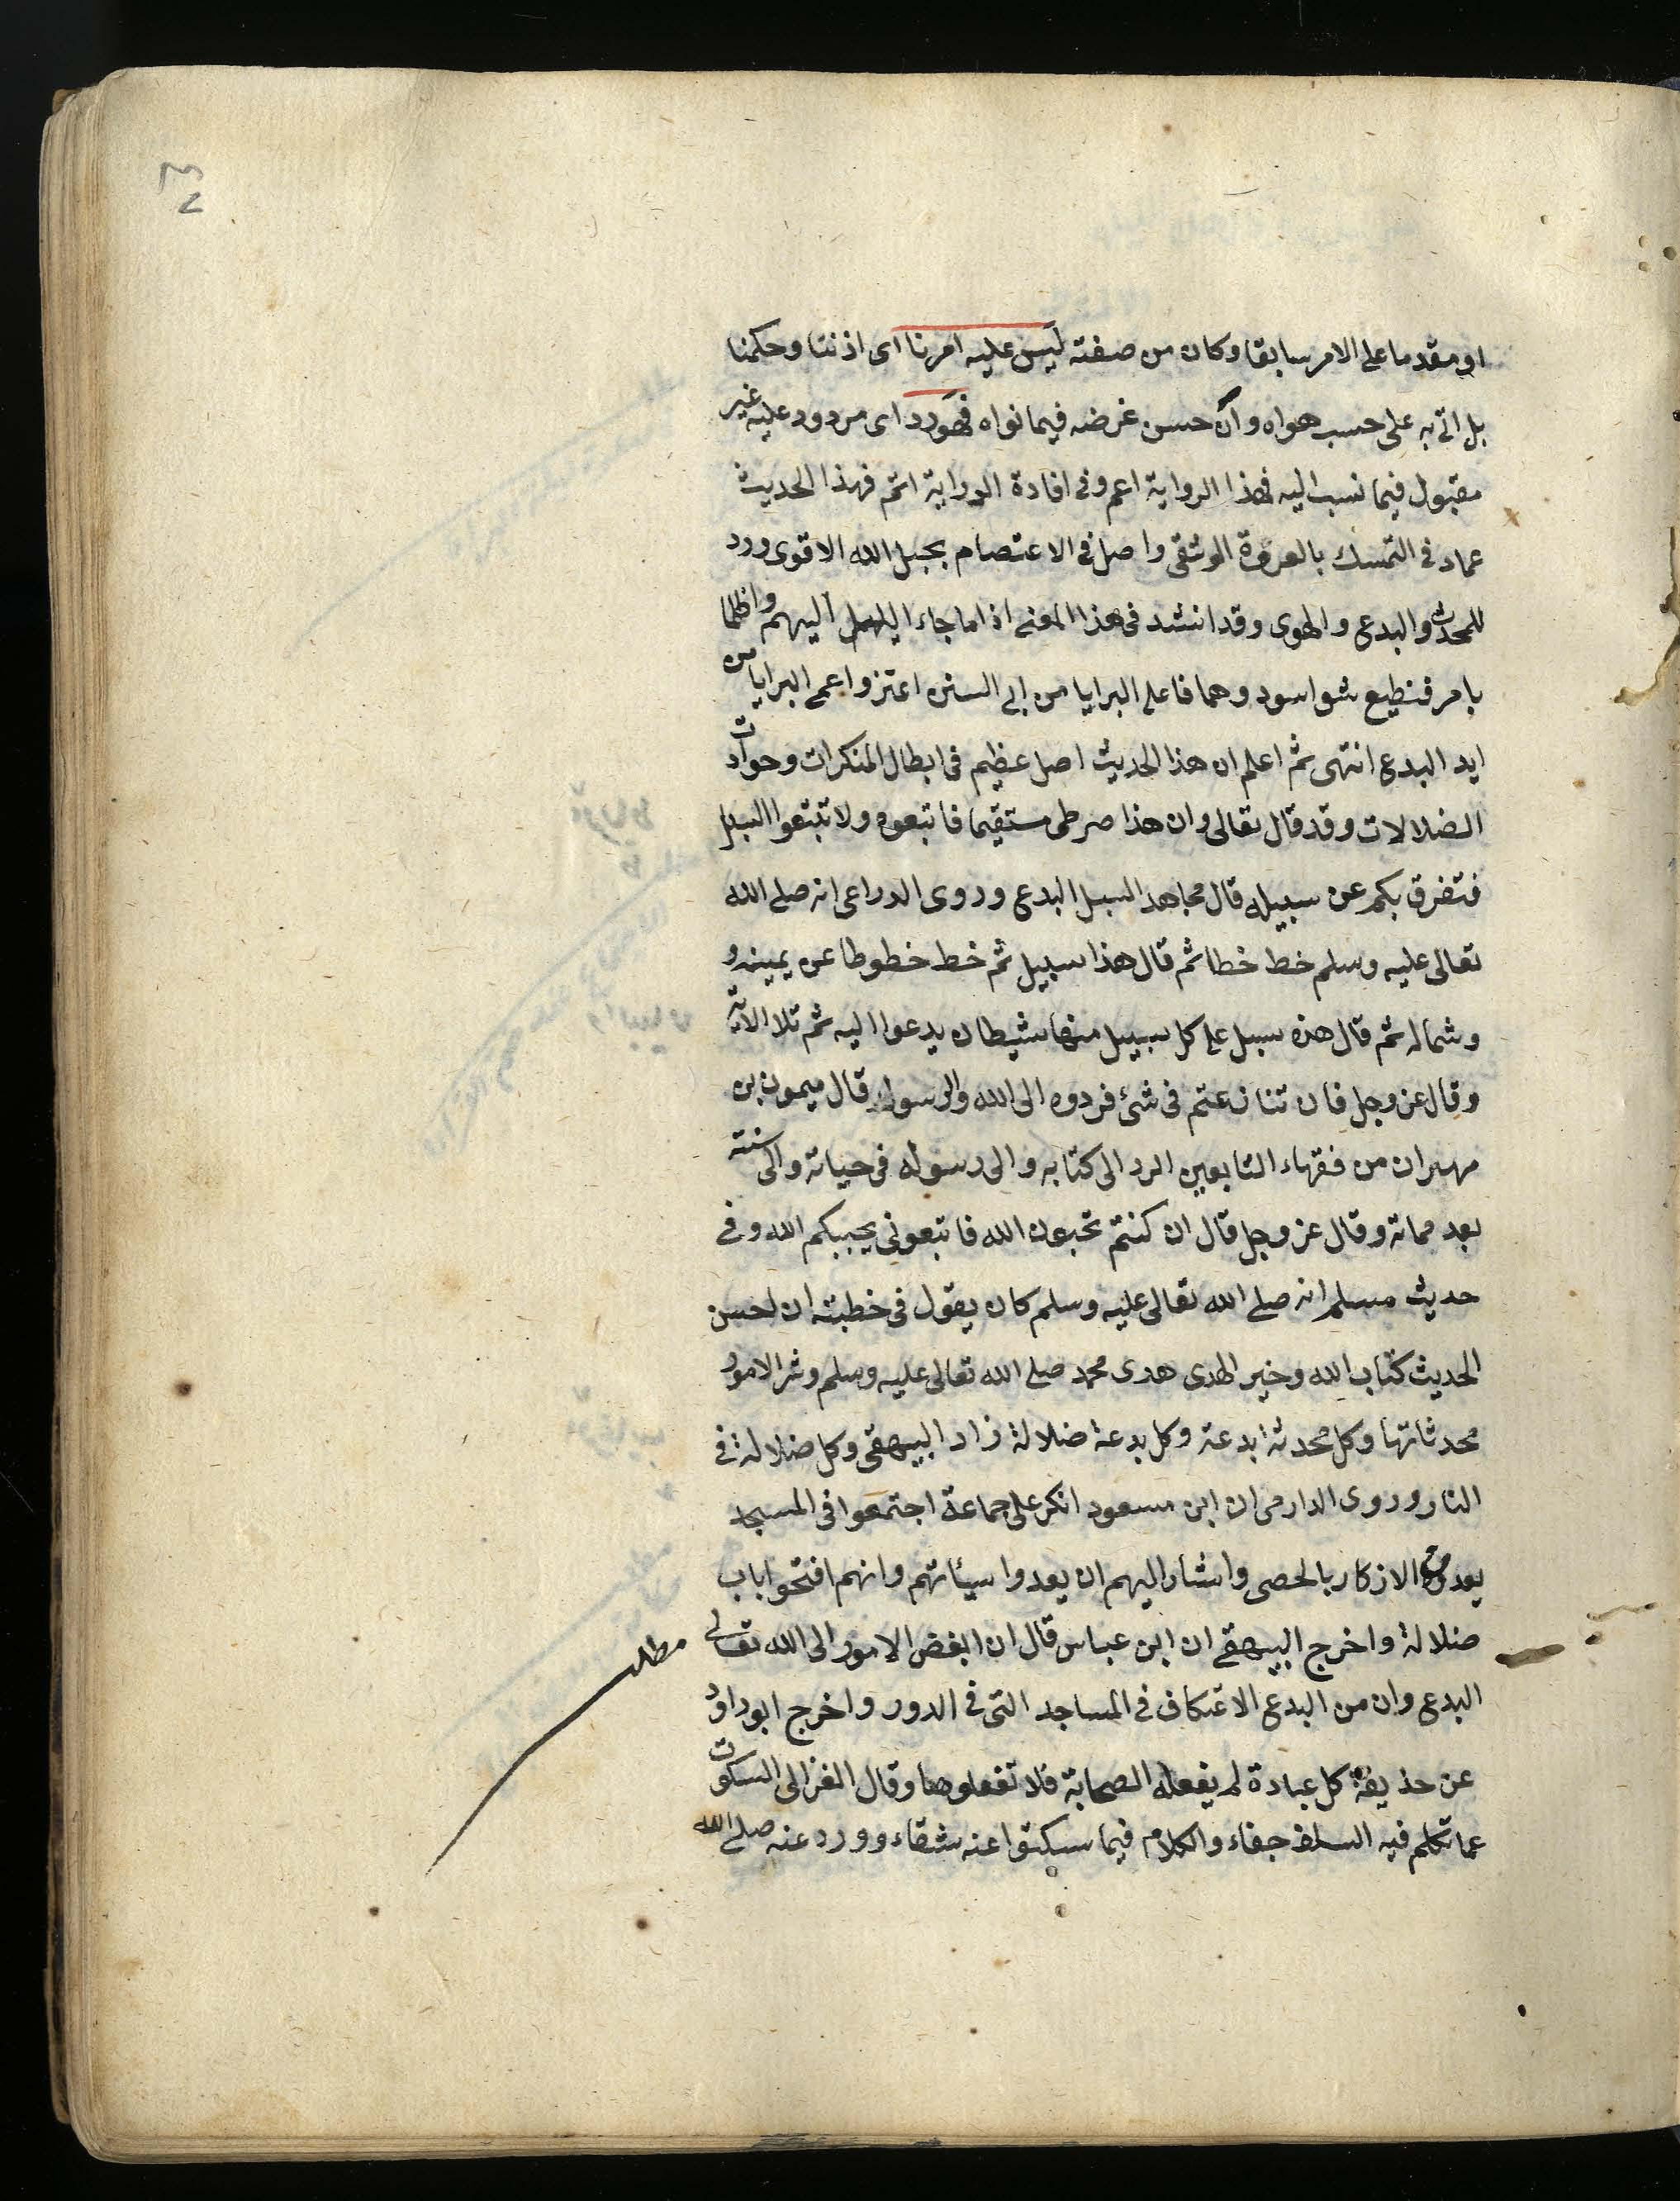 او مقدما على الامر سابقا وكان من صفته ليس عليه امرنا اى اذننا وحكمنا
بل اتى به على حسب هواه وان حسن غرضه فيما نواه فهو رد اى مردود عليه غير
مقبول فيما نسب اليه فهذا الرواية اعم وفى افادة الدراية اتم فهذا الحديث
عماد فى التمسك بالعروة الوثقى واصل فى الاعتصام بحبل الله الاقوى ورد
للمحدث والبدع والهوى وقد انشد فى هذا المعنى اذا ما جاء الليل اليهم واظلما
بامر فنطيع اسود وهما فاعلى البرايا من الى السنن اعتزوا اعمى البرايا من
ايد البدع انتهى ثم اعلم ان هذا الحديث اصل عظيم فى ابطال المنكرات وحوادث
الضلالات وقد قال تعالى وان هذا صرطى مستقيما فاتبعوه ولا تتبعوا السبل
فتفرق بكم عن سبيله قال مجاهد السبل البدع وروى الدراعى انه صلى الله
تعالى عليه وسلم خط خطا ثم قال هذا سبيل ثم خط خطوطا عن يمينه و
وشماله ثم قال هذه سبل على كل سبيل منها شيطان يدعوا اليه ثم تلا الاية
وقال عز وجل فان تنازعتم فى شئ فردوه الى الله والرسول قال ميمون بن
مهران من فقهاء التابعين الرد الى كتابه والى رسوله فى حياته والى سنته
بعد مماته وقال عز وجل قال ان كنتم تحبون الله فاتبعونى يحببكم الله وفى
حديث مسلم انه صلى الله تعالى عليه وسلم كان يقول فى خطبته ان احسن
الحديث كتاب الله وخير الهدى هدى محمد صلى الله تعالى عليه وسلم وشر الامور
محدثاتها وكل محدثة ابدعة وكل بدعة ضلالة زاد البيهقى وكل ضلالة فى
النار وروى الدارمى ان ابن مسعود انكر على جماعة اجتمعوا فى المسجد
يعدون الاذكار بالحصى واشار اليهم ان يعدوا سيئاتهم وانهم افتحوا باب
ضلالة واخرج البيهقى ان ابن عباس قال ان ابغض الامور الى الله تعالى
مطلب
البدع وان من البدع الاعتكاف فى المساجد التى فى الدور واخرج ابو داود
عن حذيفة كل عبادة لم يفعله الصحابة فلا تفعلوها وقال الغزالى السكوت
عما تكلم فيه السلف جفاء والكلام فيما سكتوا عنه شقاء وورد عنه صلى الله